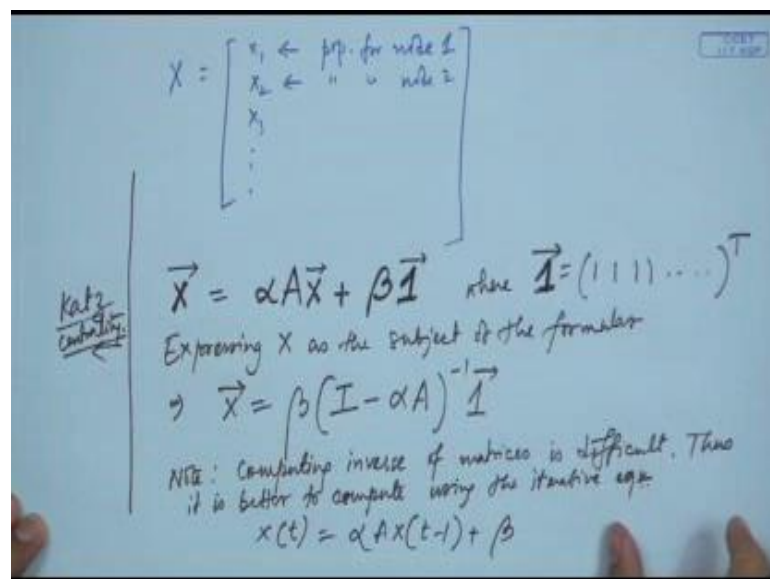 X = [ x₁ ← pop. for node 1
x₂ ← " " node 2
x₃
:
:
Katz
Centrality.
x⃗ = αAx⃗ + β1⃗ where 1⃗ = (1 1 1 1 ....)ᵀ
Expressing X as the subject of the formular
⇒ x⃗ = β(I - αA)⁻¹ 1⃗
Note: Computing inverse of matrices is difficult. Thus
it is better to compute using the iterative eqn
x(t) = αAx(t-1) + β